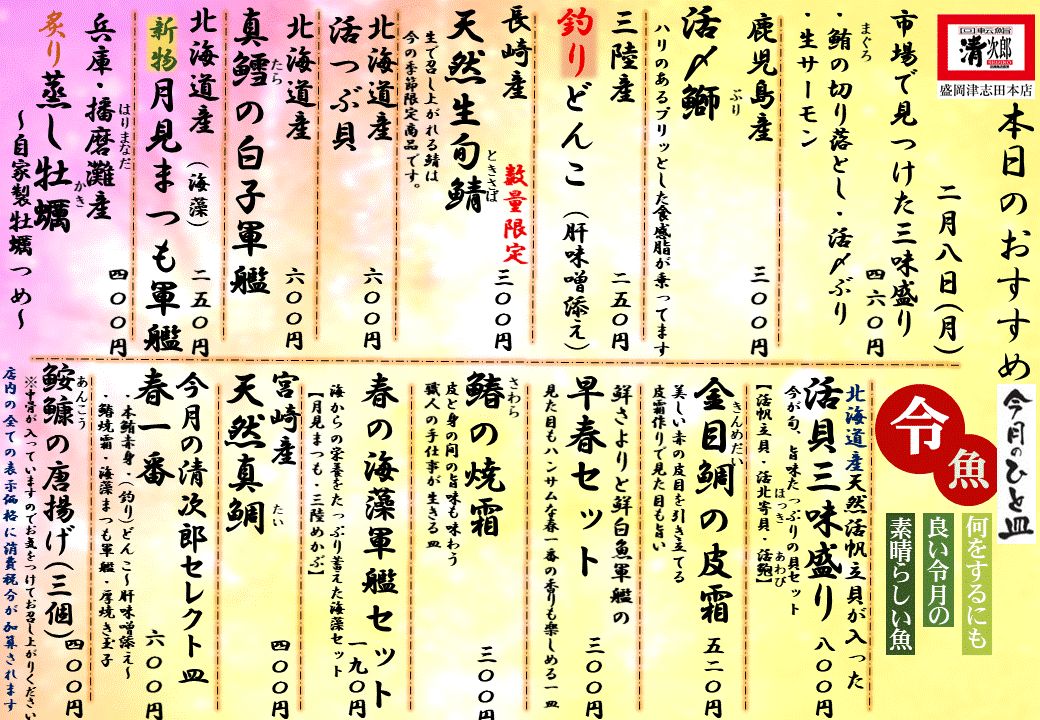 回転鮨
清次郎
SEIJIRO
盛岡津志田本店
本日のおすすめ
二月八日(月)
市場で見つけた三味盛り
・鮪の切り落とし・活〆ぶり
まぐろ
・生サーモン
四六〇円
鹿児島産
三〇〇円
活〆鰤
ぶり
ハリのあるプリッとした食感脂が乗ってます
三陸産
二五〇円
釣りどんこ(肝味噌添え)
長崎産
数量限定
三〇〇円
天然生旬鯖
ときさば
生で召し上がれる鯖は
今の季節限定商品です。
北海道産
六〇〇円
活つぶ貝
北海道産
六〇〇円
真鱈の白子軍艦
たら
北海道産(海藻)
二五〇円
新物月見まつも軍艦
兵庫・播磨灘産
はりまなだ
四〇〇円
炙り蒸し牡蠣
かき
〜自家製牡蠣つめ〜
今月のひと皿
令魚
何をするにも
良い令月の
素晴らしい魚
北海道産天然活帆立貝が入った
活貝三味盛り
八〇〇円
今が旬、旨味たっぷりの貝セット
【活帆立貝・活北寄貝・活鮑】
ほっき
あわび
金目鯛の皮霜
きんめだい
五二〇円
美しい赤の皮目を引き立てる
皮霜作りで見た目も旨い
鮮さよりと鮮白魚軍艦の
早春セット
三〇〇円
見た目もハンサムな春一番の香りも楽しめる一皿
鰆の焼霜
さわら
三〇〇円
皮と身の間の旨味も味わう
職人の手仕事が生きる皿
春の海藻軍艦セット
一九〇円
海からの栄養をたっぷり蓄えた海藻セット
【月見まつも・三陸めかぶ】
宮崎産
四〇〇円
天然真鯛
たい
今月の清次郎セレクト皿
春一番
六〇〇円
・本鮪赤身・(釣り)どんこ〜肝味噌添え〜
・鰆焼霜・海藻まつも軍艦・厚焼き玉子
鮟鱇の唐揚げ(三個)
あんこう
四〇〇円
※中骨が入っていますのでお気をつけてお召し上がりください
店内の全ての表示価格に消費税分が加算されます